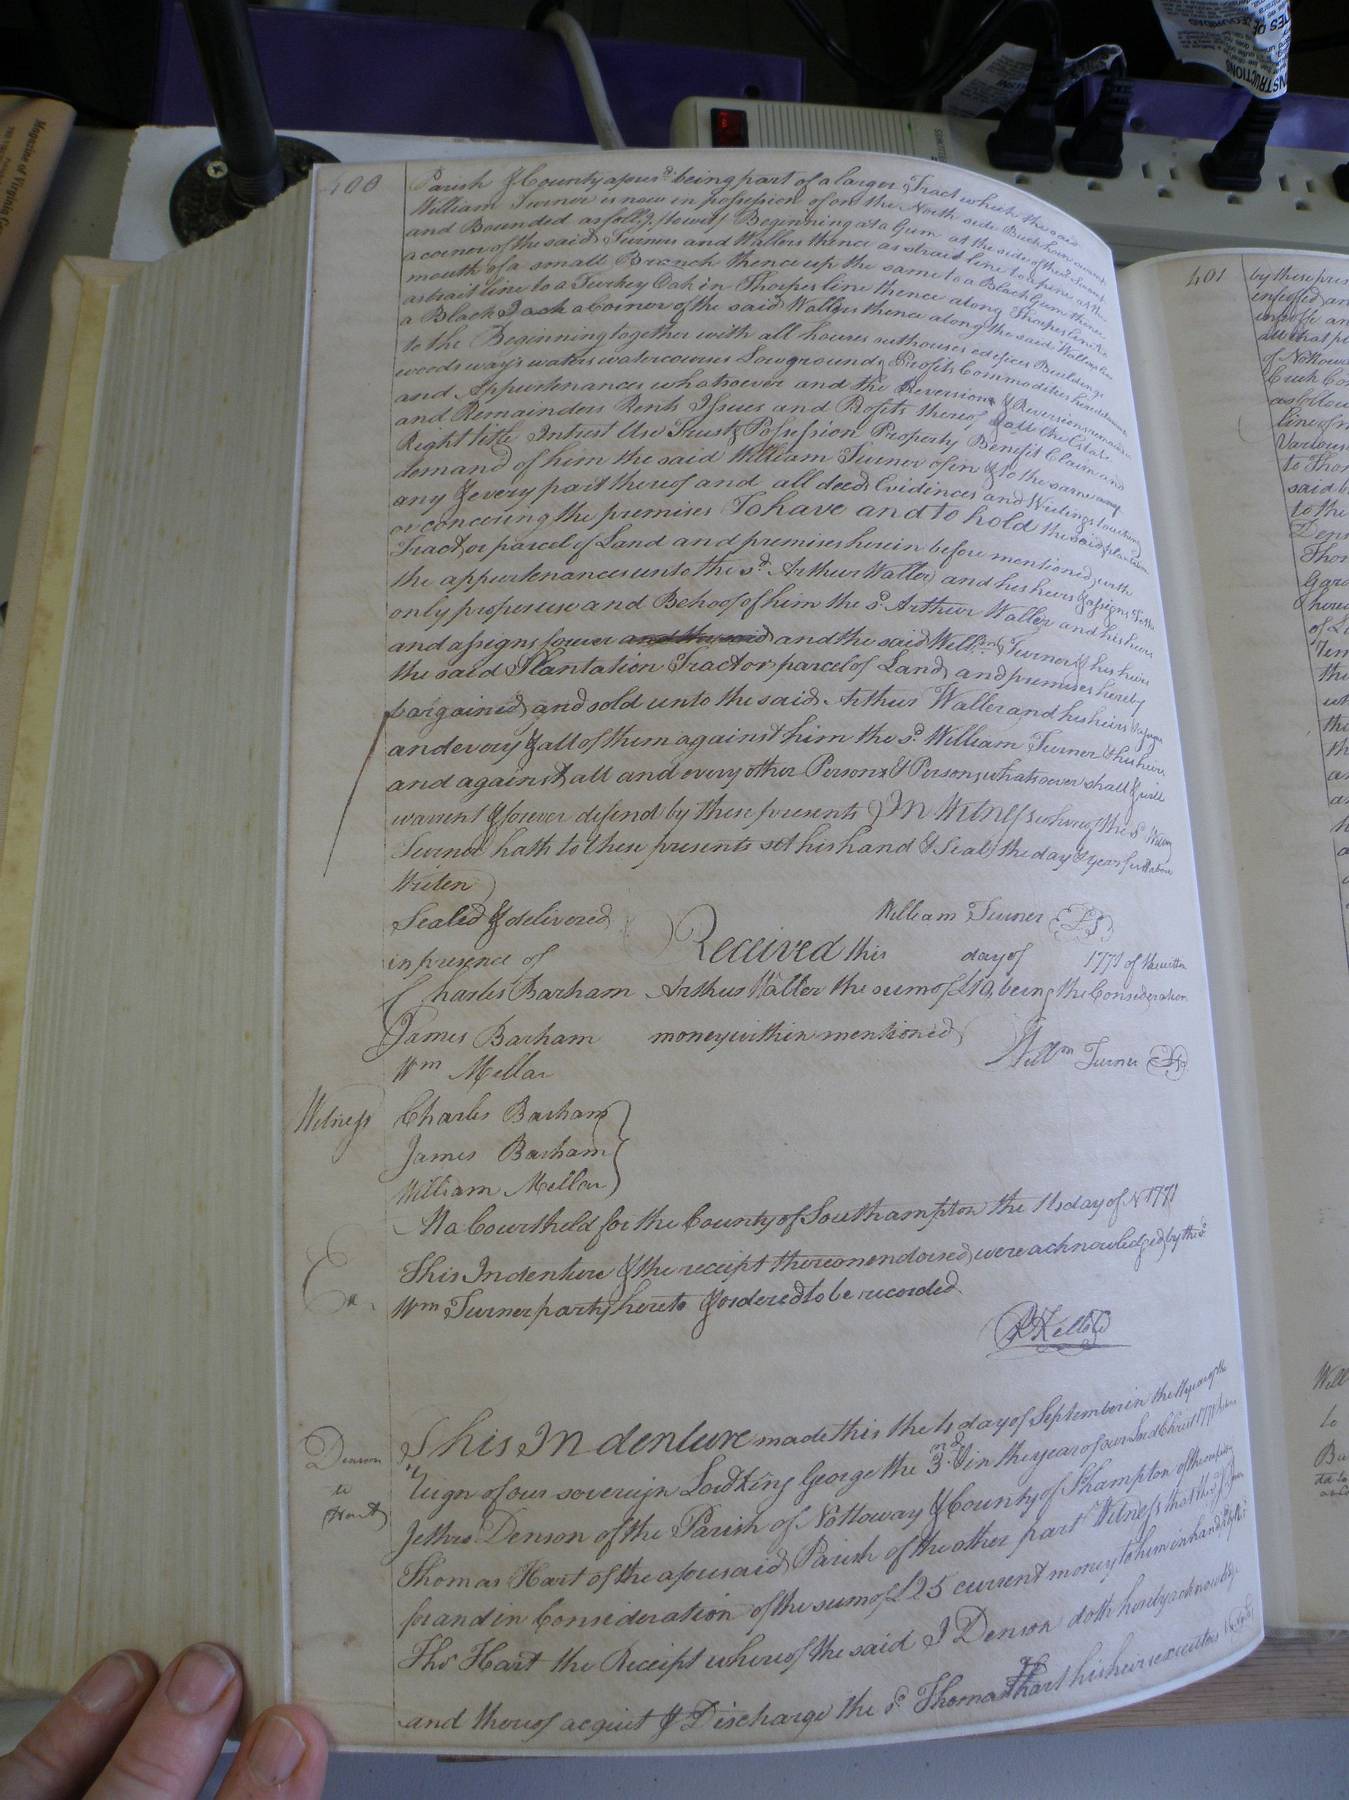 400
Parish & County afores.d being part of a larger Tract which the said
William Turner is now in possession of on the North side Buckhorn swamp
and Bounded as foll.g (towit) Beginning at a Gum at the side of the s.d Swamp
a corner of the said Turner and Wallers thence a strait line to a pine at the
mouth of a small Branch thence up the same to a Black Gum thence
a strait line to a Turkey Oak in Thorpes line thence along Thorpes line to
a Black Jack a Corner of the said Wallers thence along the said Wallers line
to the Beginning together with all houses outhouses edefices Buildings
woods ways waters watercourses Lowgrounds Profits Commodities hereditaments
and Appurtenances whatsoever and the Reversion & Reversions remainder
and Remainders Rents Issues and Profits thereof & all the Estate
Right title Intrest Use Trust Possession Property Benefit Claim and
demand of him the said William Turner of in & to the same &
any & every part thereof and all deeds Evidences and Writings touching
or concering the premises To have and to hold the said plantation
Tract or parcel of Land and premises herein before mentioned with
the appurtenances unto the s.d Arthur Waller and his heirs & assigns To the
only proper use and Behoof of him the s.d Arthur Waller and his heirs
and assigns forever and the said and the said Will.m Turner & his heirs
the said Plantation Tract or parcel of Land and premises hereby
bargained and sold unto the said Arthur Waller and his heirs & assigns
and every & all of them against him the s.d William Turner & his heirs
and against all and every other Person & Persons whatsoever shall & will
warrent & forever defend by these presents In Witness whereof the s.d William
Turner hath to these presents set his hand & Seal the day & year first above
Writen
William Turner LS
Sealed & delivered
in presence of
Charles Barham
James Barham
Wm Mellar
Received this day of 1771 of the within
Arthur Waller the sum of £10, being the Consideration
money within mentioned
Willm Turner LS
Witness
Charles Barham
James Barham
William Mellar
At a Court held for the County of Southampton the 14 day of N 1771
This Indenture & the receipt thereon endorsed were acknowledged by the s.d
Wm Turner party hereto & ordered to be recorded
Ex.
R Kello CC
Denson
to
Hart
This Indenture made this the 4 day of September in the 11 year of the
reign of our sovereign Lord King George the 3.rd & in the year of our Lord Christ 1771 between
Jethro Denson of the Parish of Nottoway & County of S.hampton of the one part &
Thomas Hart of the aforesaid Parish of the other part Witness that the s.d J Denson
for and in Consideration of the sum of £25 current money to him in hand
Tho.s Hart the Receipt whereof the said J Denson doth hereby acknowledge
and thereof acquit & Discharge the s.d Thomas Hart his heirs executors &
401
by these pre
enfeoffed an
enfeoffe an
all that p
of Nottow
Creek Co
as follow
line of
Various
to Tho
said
to the
Dens
Thom
Gard
here
of L
Will
to
INSTRUCTIONS
Magazine of Virginia